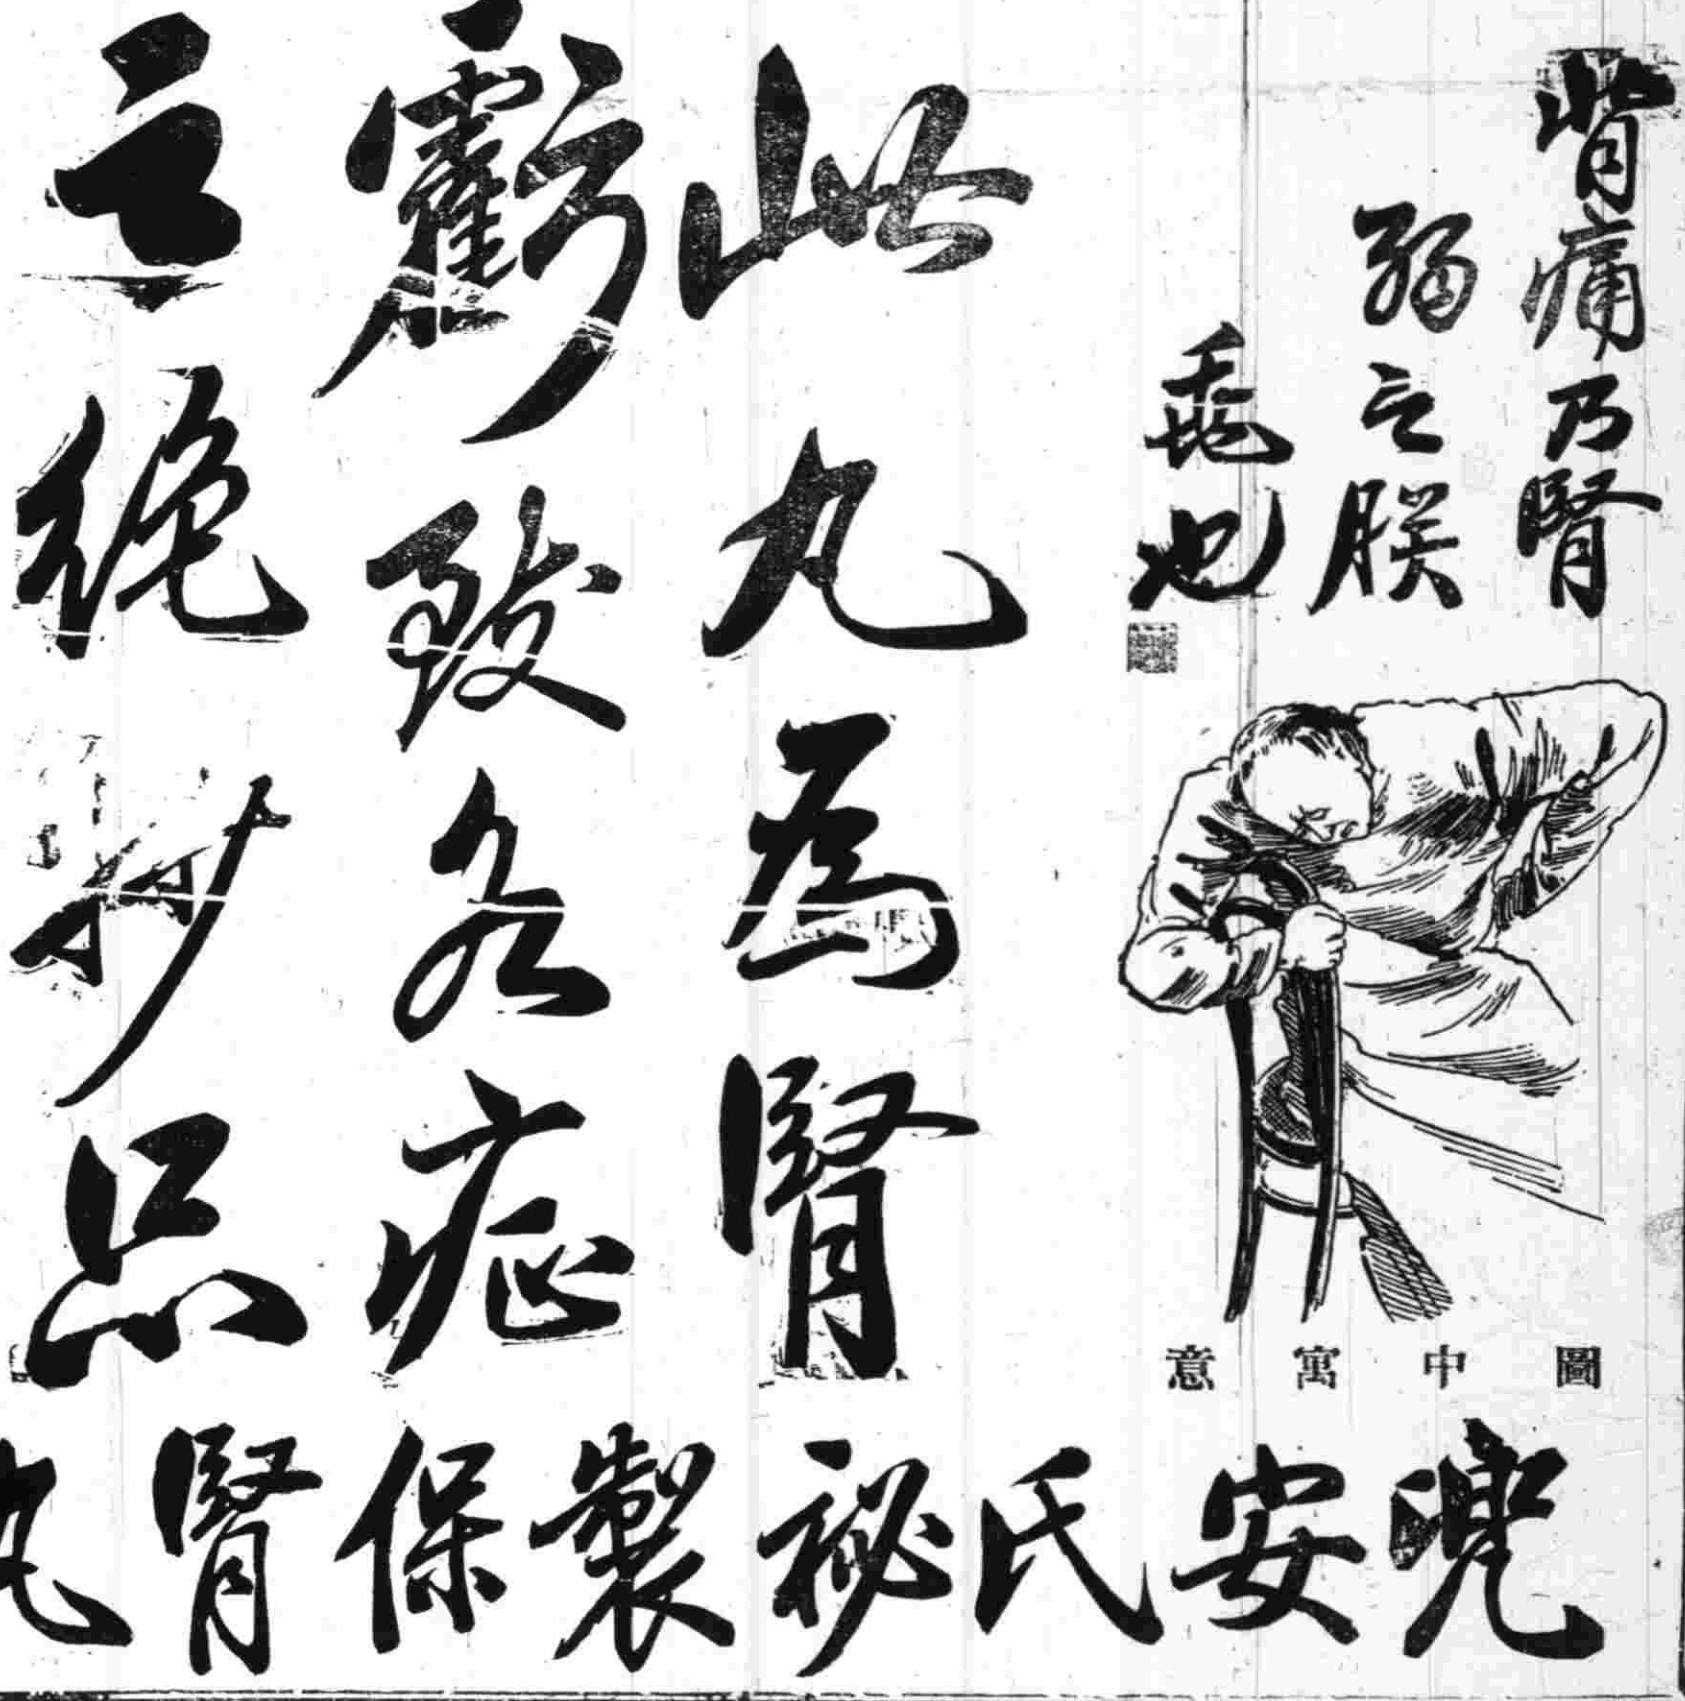 背痛乃腎
弱之朕
兆也
圖中寓意
此丸為腎
虧致各症
之絕妙品
兜安氏祕製保腎丸